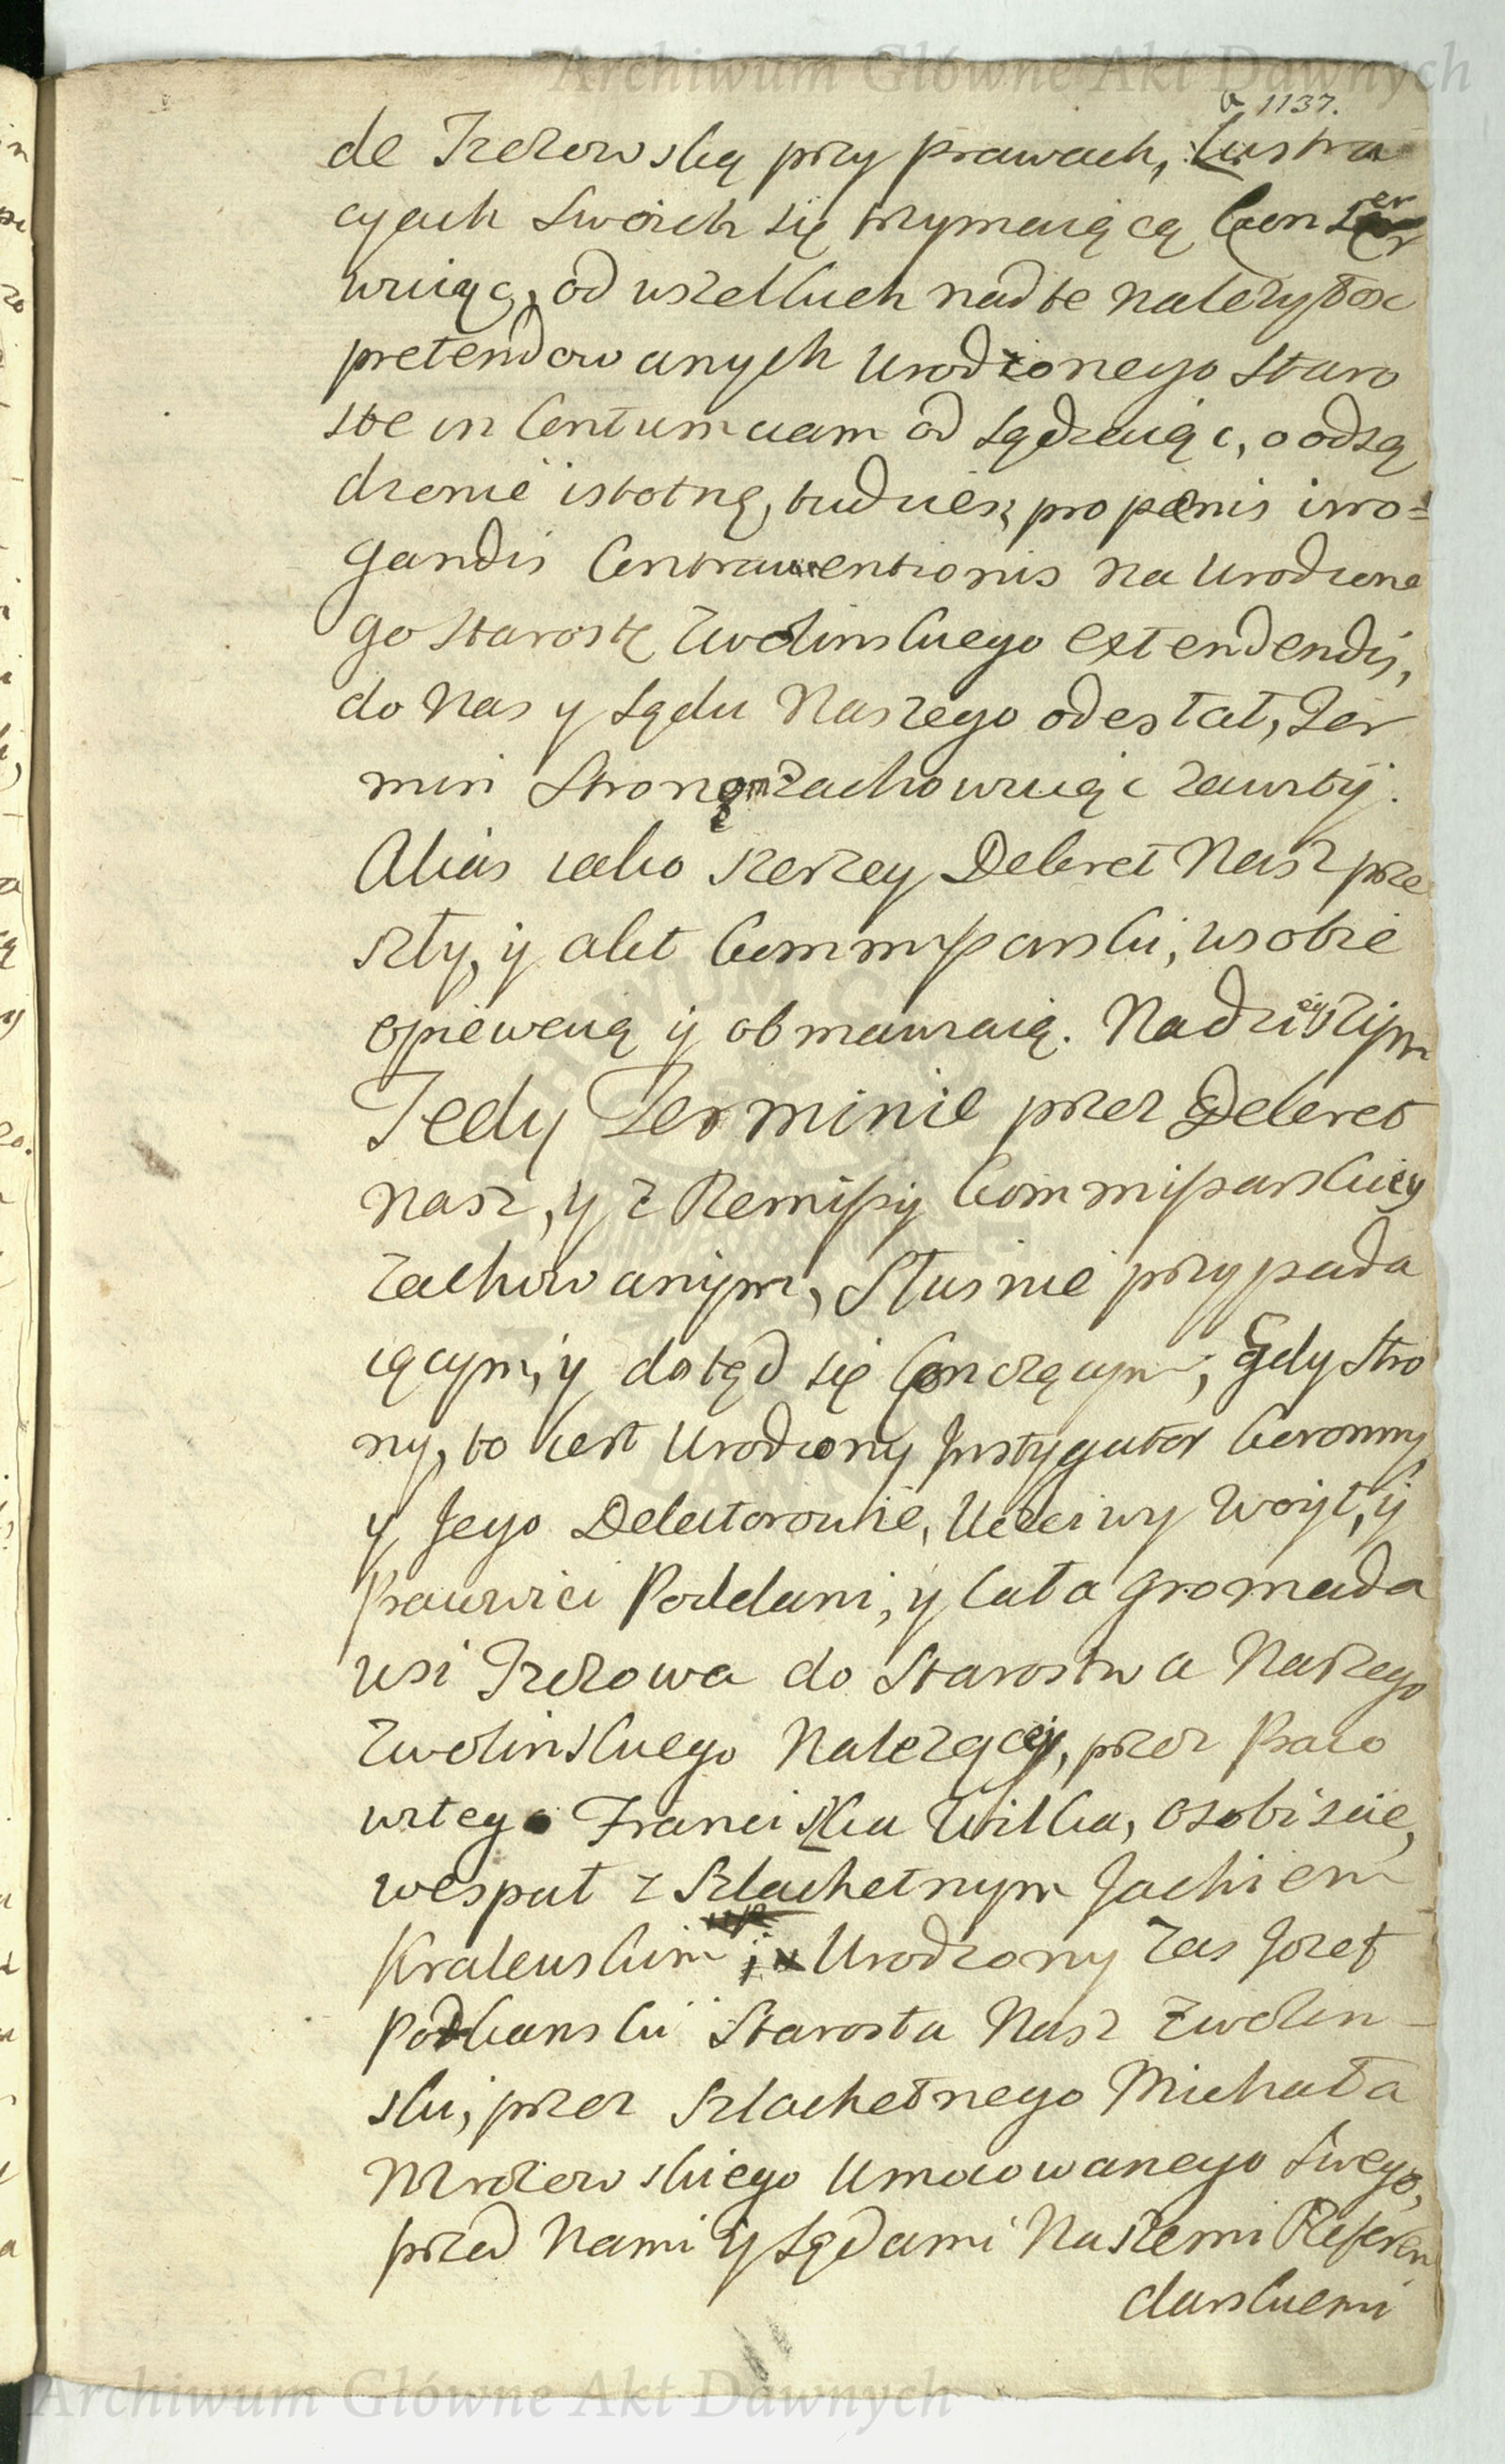 Archiwum Główne Akt Dawnych
1137.
de Jrzezowską przy prawach, Lustra
cyach swoich się trzymaiącą konser
wuiąc, od wszelkich nad te należytosc
pretendowanych Urodzonego Staro
ste in Contumciam od sądzaiąc, o odsą
dzenie istotne, tudziesz pro pænis irro=
gandis Contrauentionis na Urodzone
go Starostę Zwolinskiego extendendis,
do Nas y Sądu Naszego odesłał, Ter
min Stronom zachowuiąc zawity.
Alias iako szerzey Dekret Nasz prze
szły, y akt kommissarski, w sobie
opiewaią y obmawiaią. Na dzieyszym
Tedy Terminie przez Dekret
Nasz, y z Remissy kommissarskiey
zachowanym, słusnie przypada
iącym, y dotąd się kończącym, Gdy Stro
ny, to iest Urodzony Jnstygator koronny
y Jego Delatorowie, Uczciwy Woyt, y
Pracowici Poddani, y cała gromada
wsi Jrzezowa do Starostwa Naszego
Zwolinskiego Należącey, przez Praco
witego Franciszka Wilka, osobiscie,
wespoł z Szlachetnym Jachiem
Krakewskim Urodzony zas Jozef
Podkanski Starosta Nasz Zwolin
ski, przez Szlachetnego Michała
Mrozowskiego Umocowanego Swego,
przed Nami y Sądami Naszemi Referen
darskiemi
Archiwum Główne Akt Dawnych